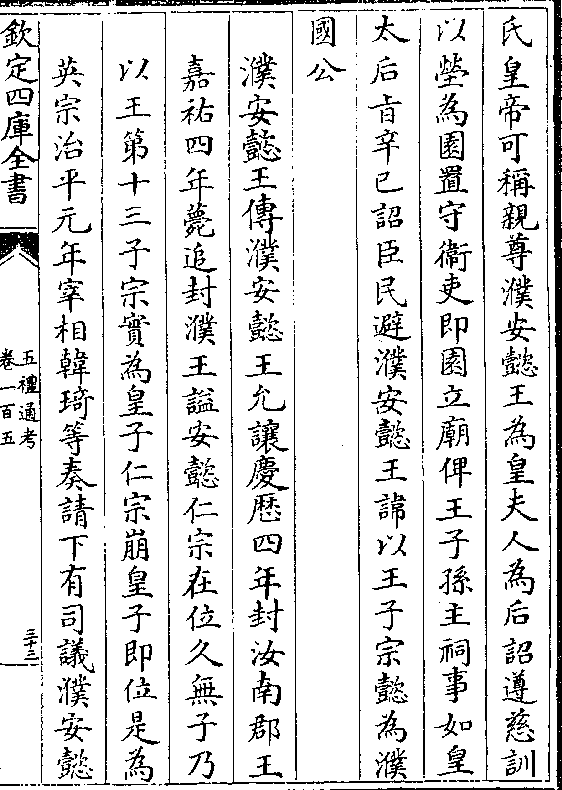 氏皇帝可稱親尊濮安懿王為皇夫人為后詔遵慈訓
以塋為園置守衞吏即園立廟俾王子孫主祠事如皇
太后㫖辛巳詔臣民避濮安懿王諱以王子宗懿為濮
國公
濮安懿王傳濮安懿王允讓慶厯四年封汝南郡王
嘉祐四年薨追封濮王諡安懿仁宗在位久無子乃
以王第十三子宗實為皇子仁宗崩皇子即位是為
英宗治平元年宰相韓琦等奏請下有司議濮安懿
欽定四庫全書
五禮通考
卷一百五
三十三